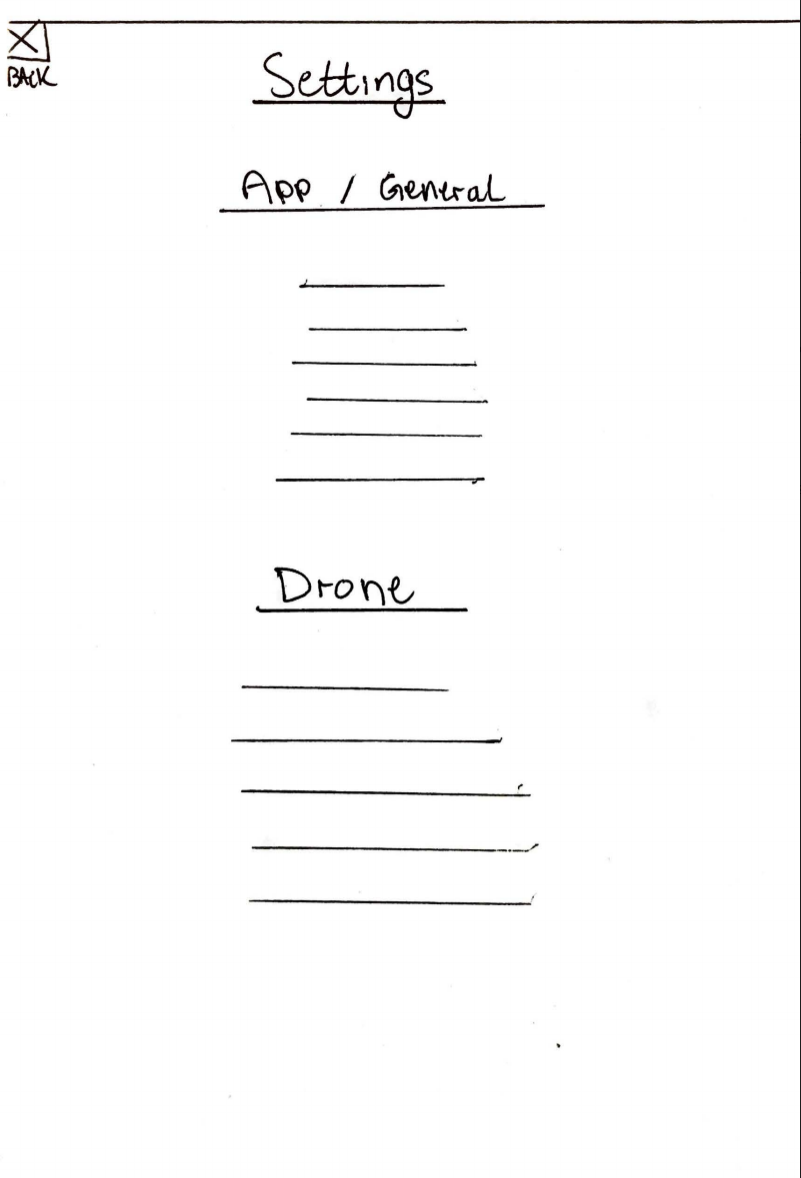 BACK
Settings
App / General
Drone